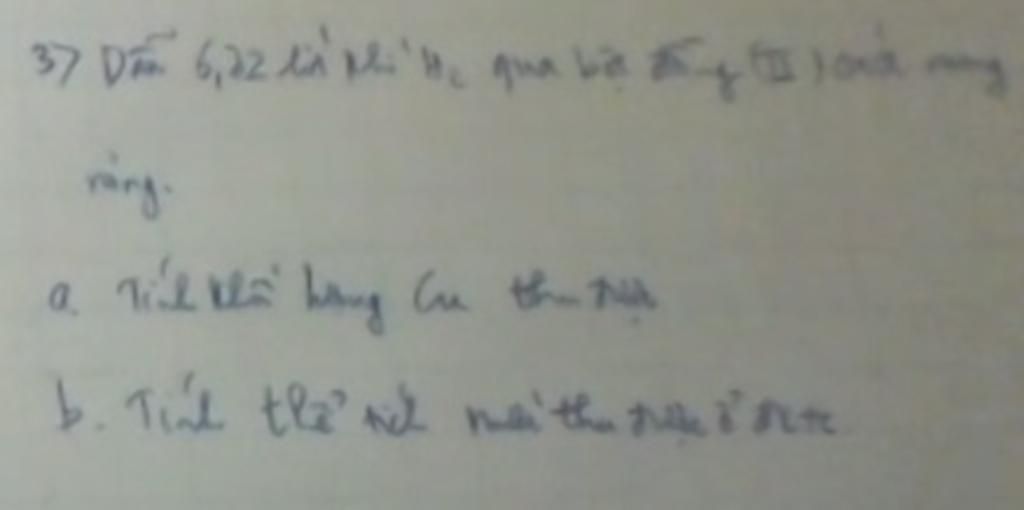 3) Dẫn 6,72 lít khí H₂ qua bột đồng (II) oxit nung
nóng.
a. Tính khối lượng Cu thu được
b. Tính thể tích nước thu được ở đktc